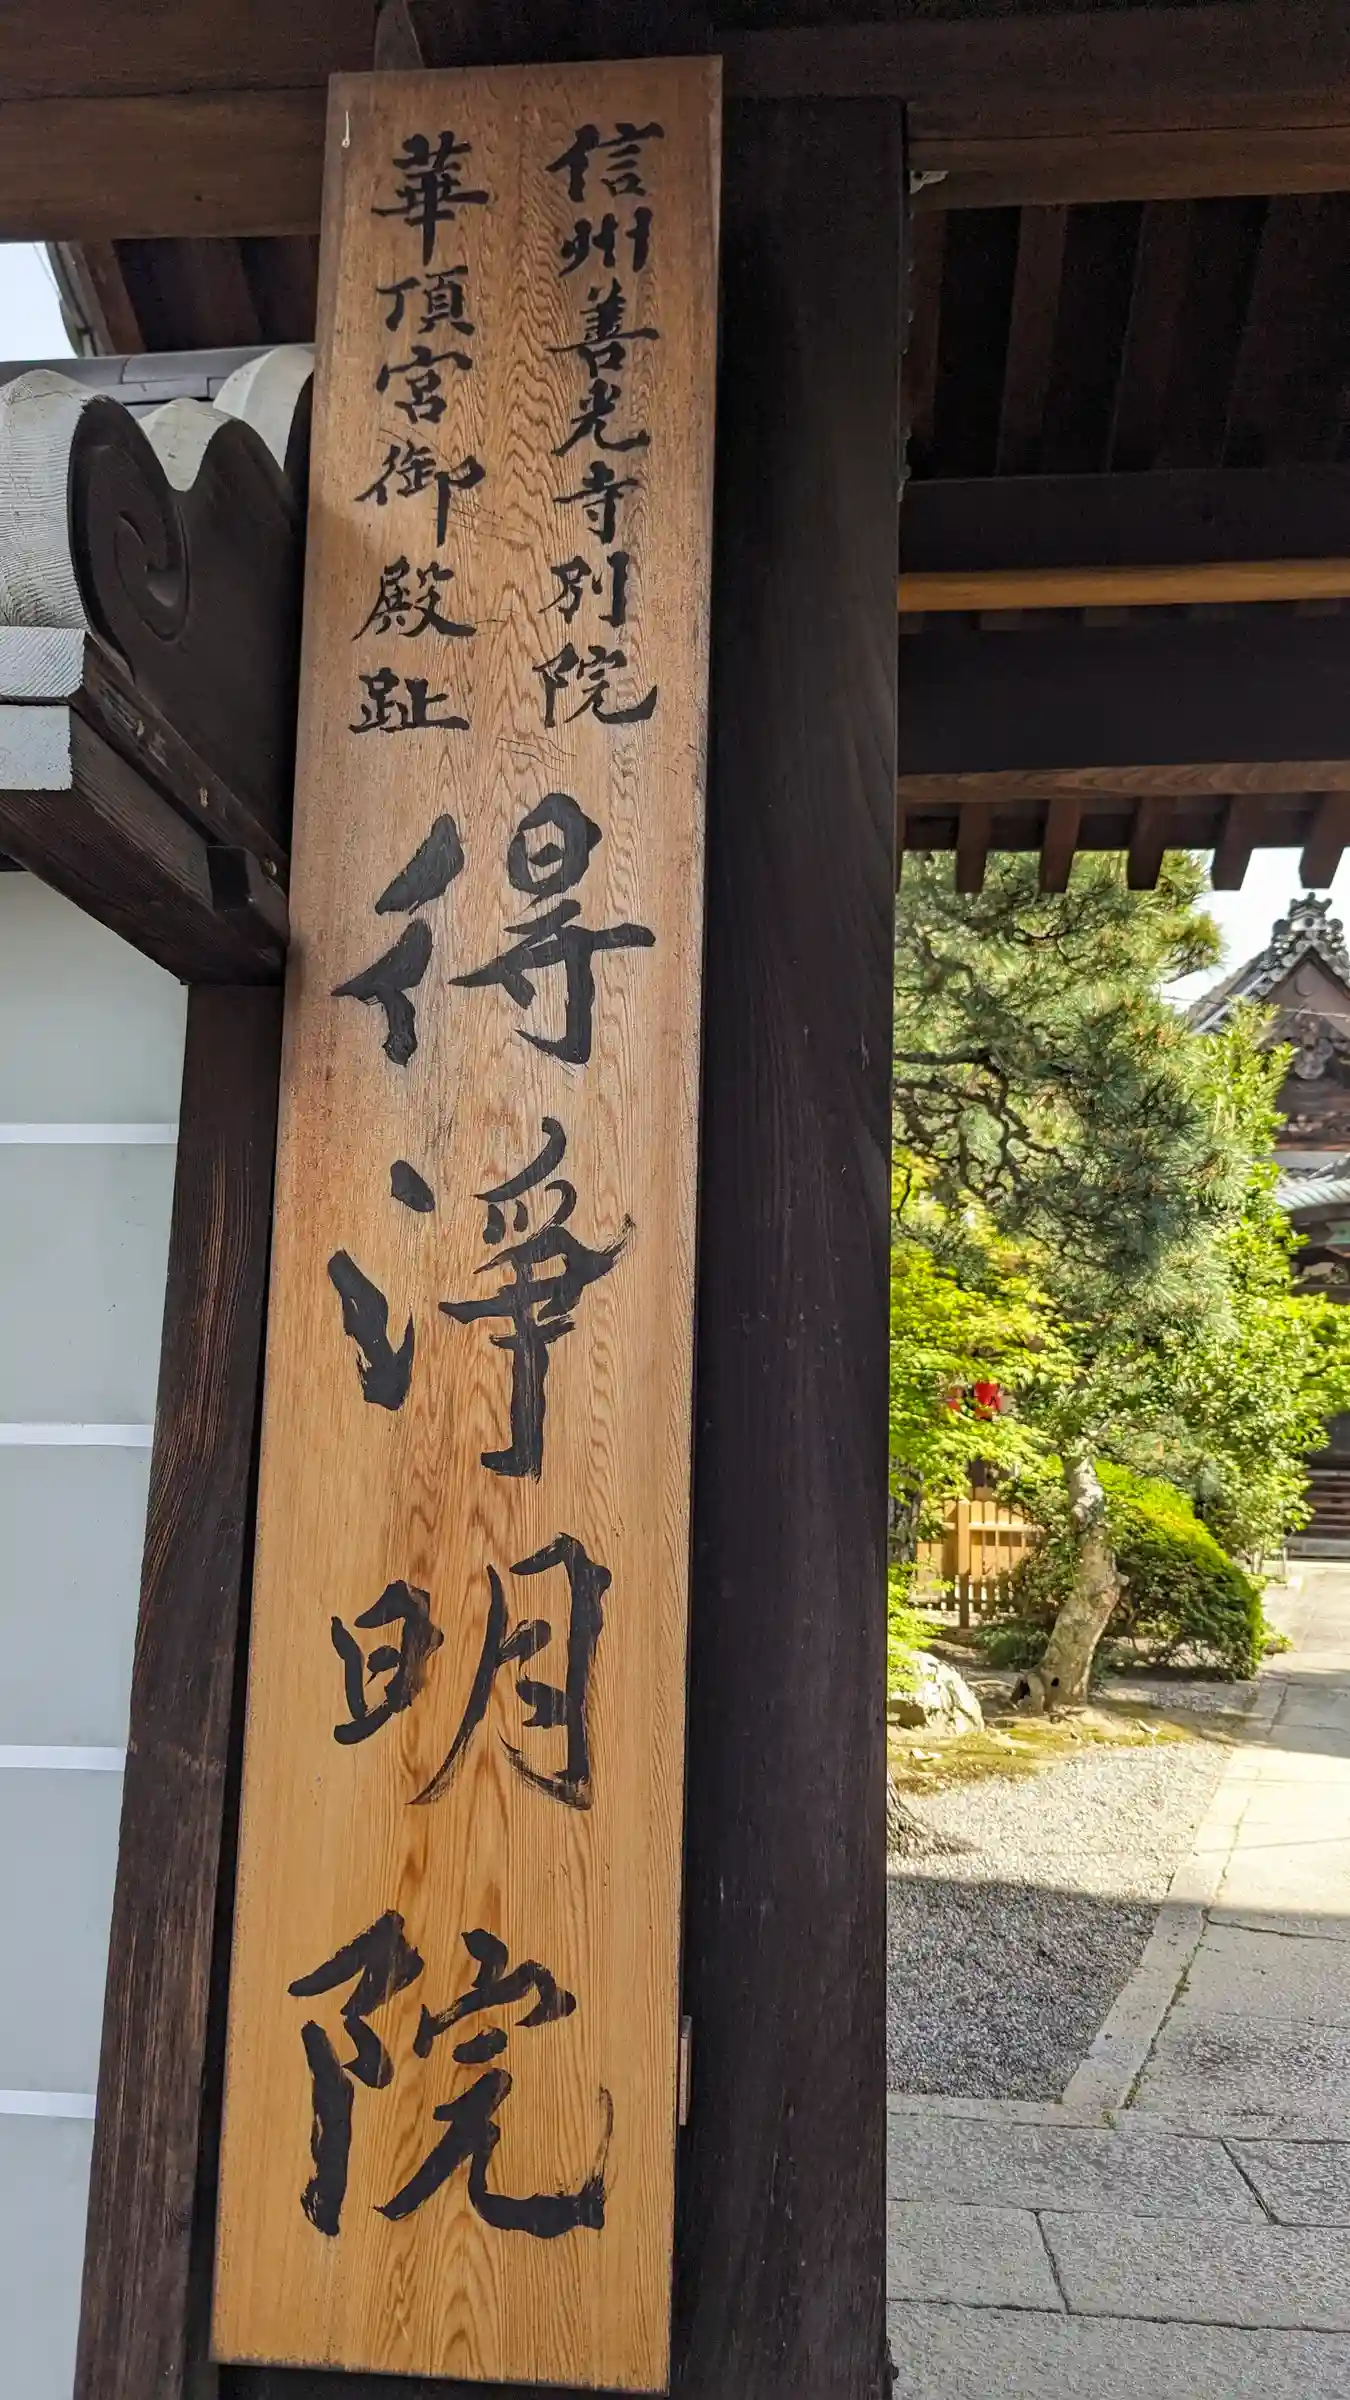 信州善光寺別院
華頂宮御殿趾
得淨明院